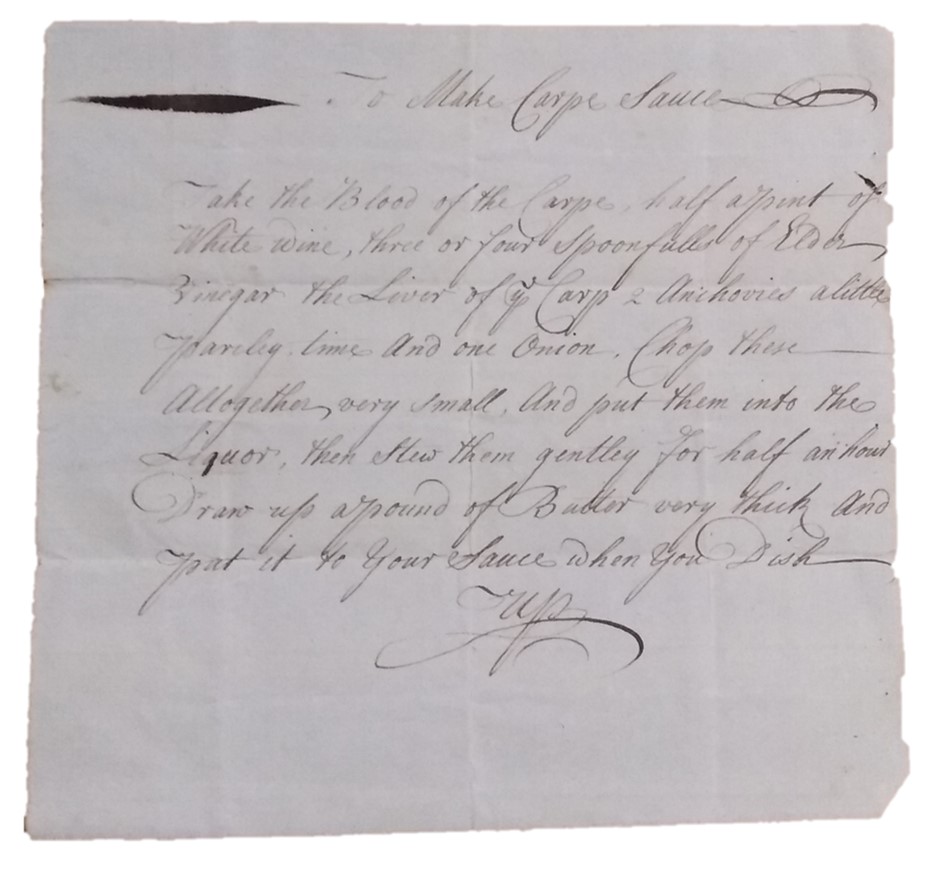 To Make Carpe Sauce
Take the Blood of the Carpe, half a pint of
White wine, three or four Spoonfulls of Elder
Vinegar the Liver of ye Carp 2 Anchovies a little
parsley time And one Onion, Chop these
Altogether very small, And put them into the
Liquor, then Stew them gentley for half an hour
Draw up a pound of Butter very thick And
put it to Your Sauce when You Dish
Up